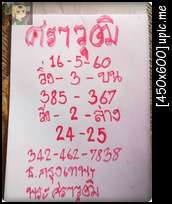 ศราวุฒิ
16-5-60
วิ่ง-3-บน
385-367
วิ่ง-2-ล่าง
24-25
342-462-7838
ธ.กรุงเทพฯ
พระศราวุฒิ
[450x600] upic.me